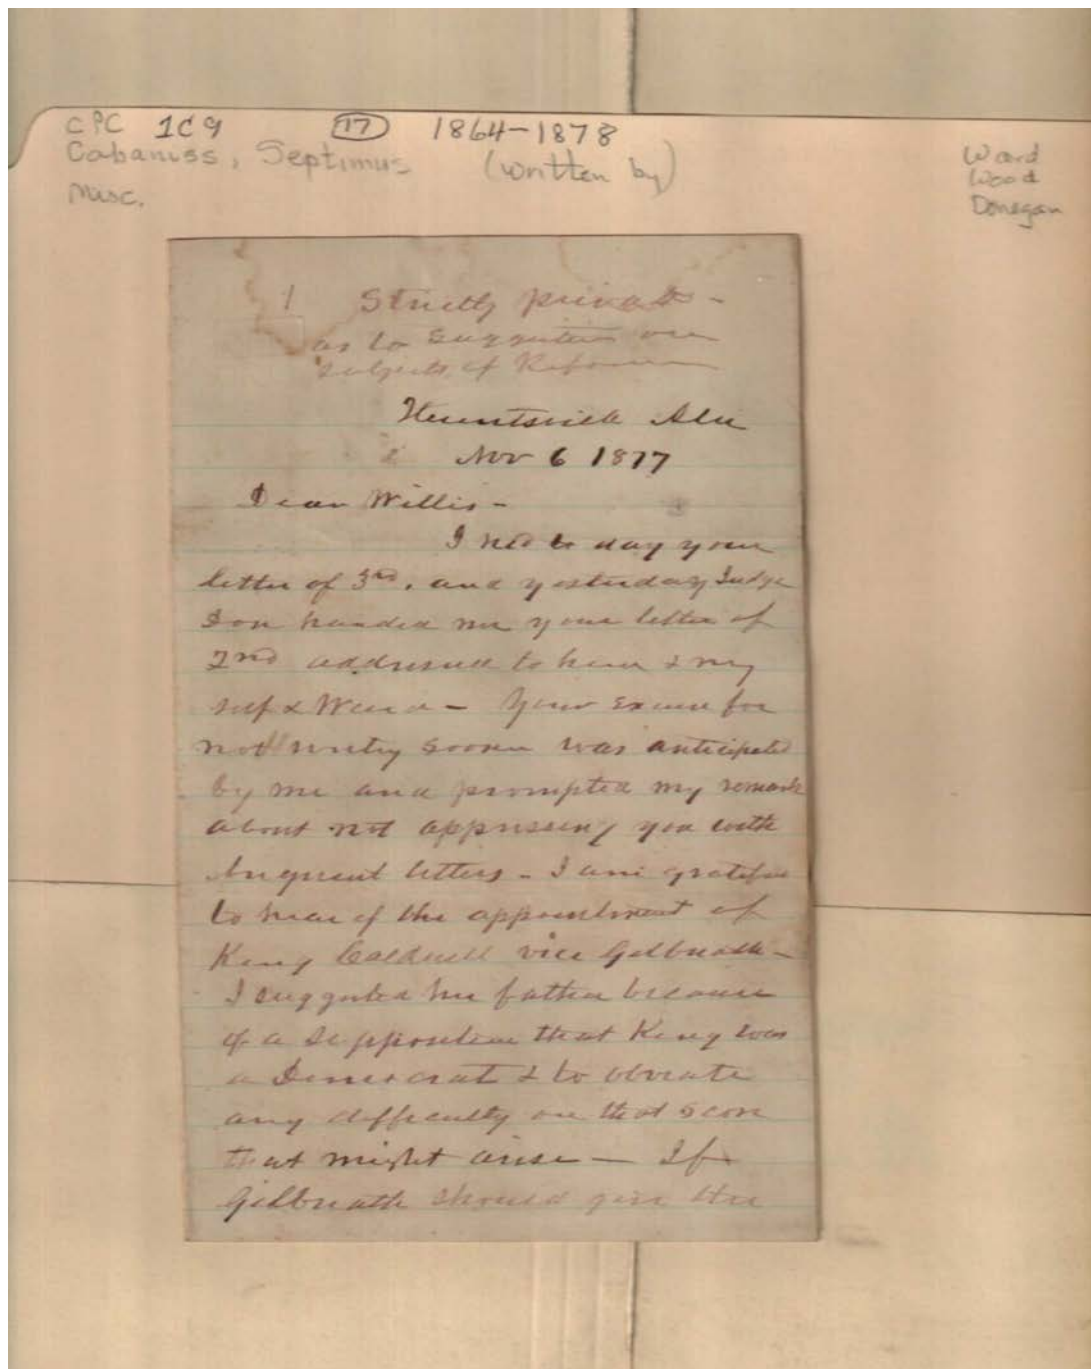 CPC 1C9 17 1864-1878
Cabaniss, Septimus (written by)
Misc.
Ward
Wood
Donegan
1 Strictly private -
as to Suggestions on
subjects of Reform
Huntsville Ala
Nov 6 1877
Dear Willis -
I rec'd to day your
letter of 3rd, and yesterday Judge
handed me your letter of
2nd addressed to him & my
self & Ward - Your excuse for
not writing sooner was anticipated
by me and prompted my remark
about not oppressing you with
frequent letters - I am gratified
to hear of the appointment of
King Caldwell vice Gilbreath -
I suggested his father because
of a supposition that King was
a Democrat & to obviate
any difficulty on that score
that might arise - If
Gilbreath should give the